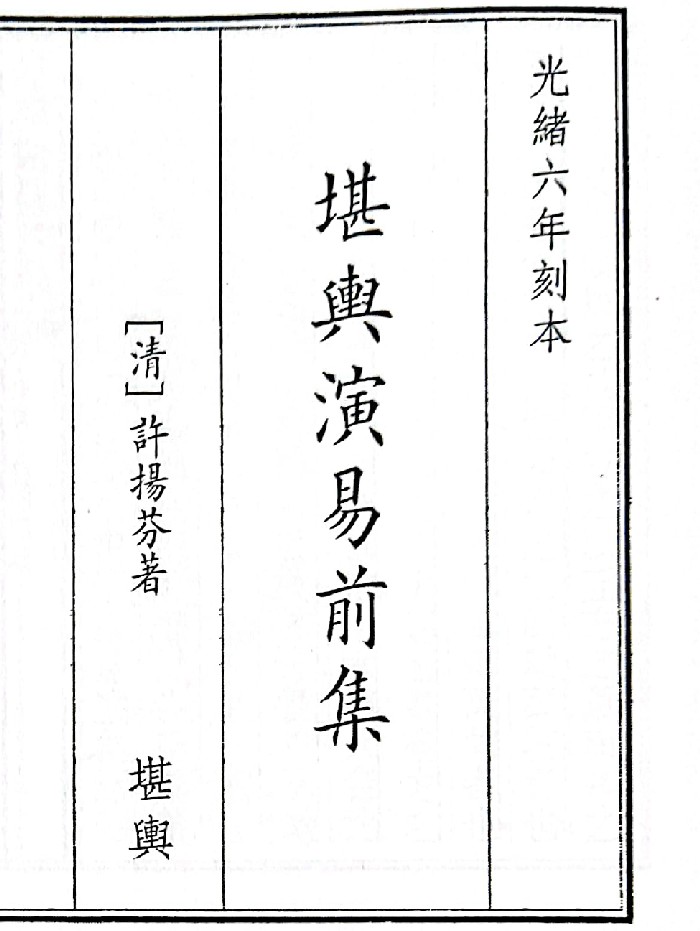 光緒六年刻本
堪輿演易前集
［清］許揚芬著
堪輿